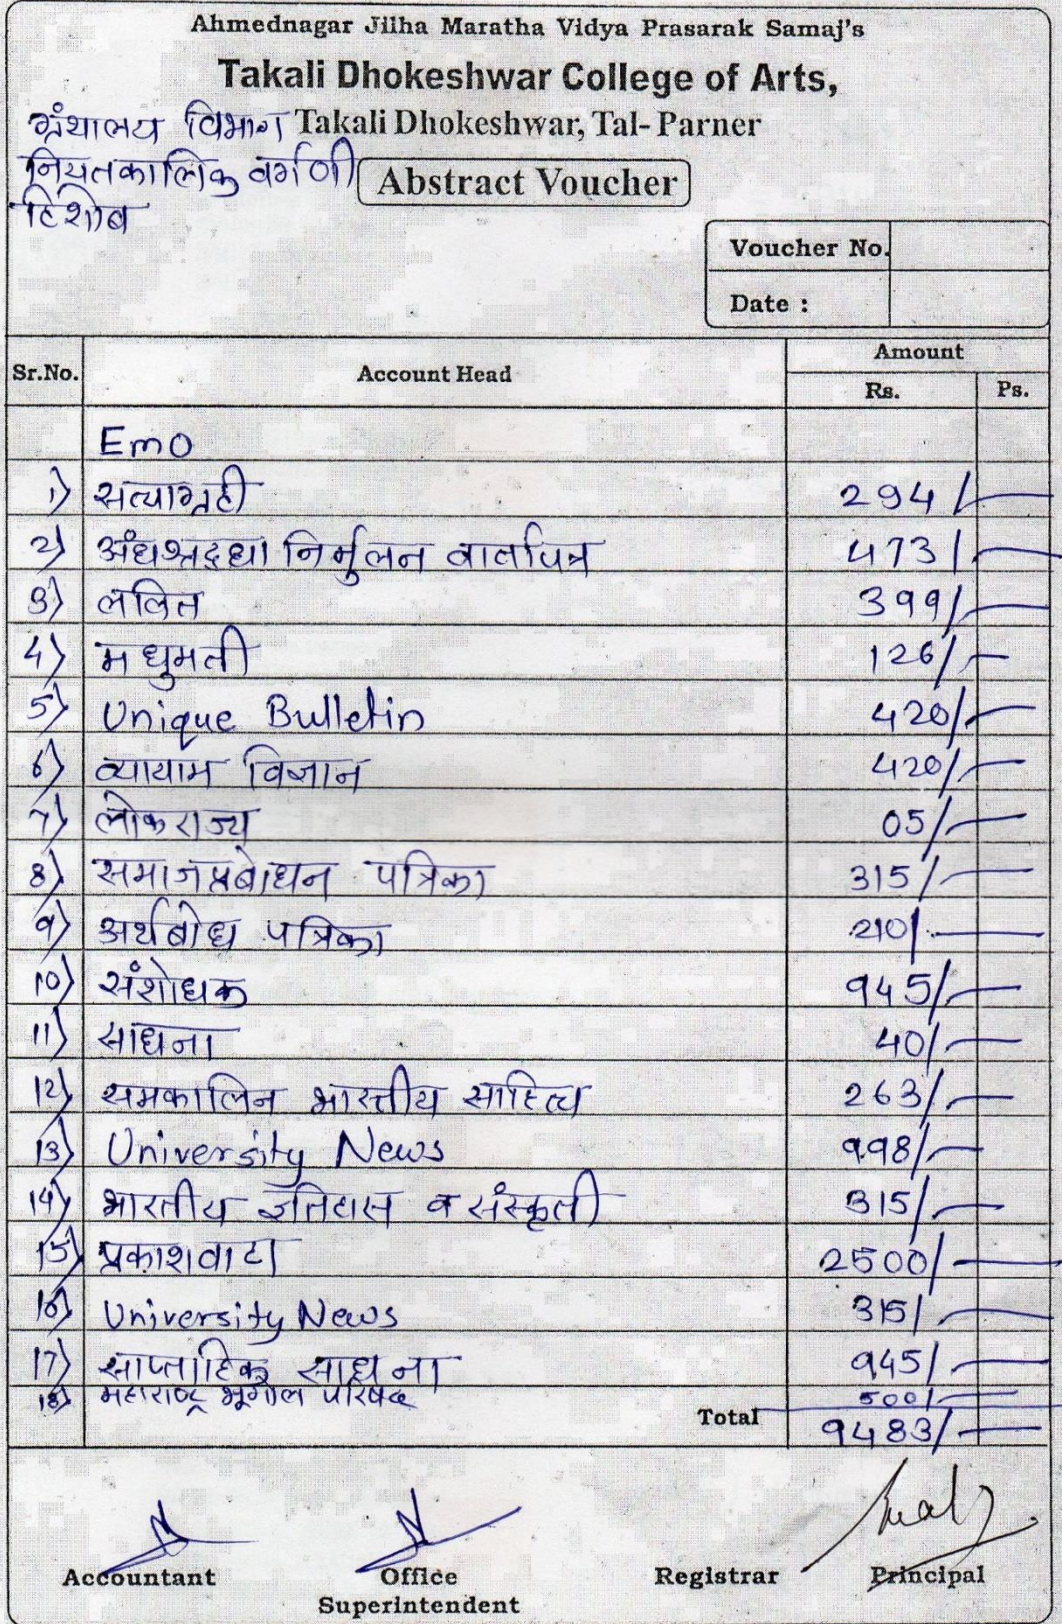 Ahmednagar Jilha Maratha Vidya Prasarak Samaj's
Takali Dhokeshwar College of Arts,
ग्रंथालय विभाग Takali Dhokeshwar, Tal-Parner
नियतकालिक वर्गणी Abstract Voucher
हिशोब
Voucher No.
Date :
Sr.No. Account Head Amount
Rs. Ps.
Emo
1) सत्याग्रही 294/—
2) अंधश्रद्धा निर्मुलन वार्तापत्र 473/—
3) ललित 399/—
4) मधुमती 126/—
5) Unique Bulletin 420/—
6) व्यायाम विज्ञान 420/—
7) लोकराज्य 05/—
8) समाजप्रबोधन पत्रिका 315/—
9) अर्थबोध पत्रिका 210/—
10) संशोधक 945/—
11) साधना 40/—
12) समकालिन भारतीय साहित्य 263/—
13) University News 998/—
14) भारतीय इतिहास व संस्कृती 315/—
15) प्रकाशवाटा 2500/—
16) University News 315/—
17) साप्ताहिक साधना 945/—
18) महाराष्ट्र भूगोल परिषद 500/—
Total 9483/—
Accountant Office Superintendent Registrar Principal